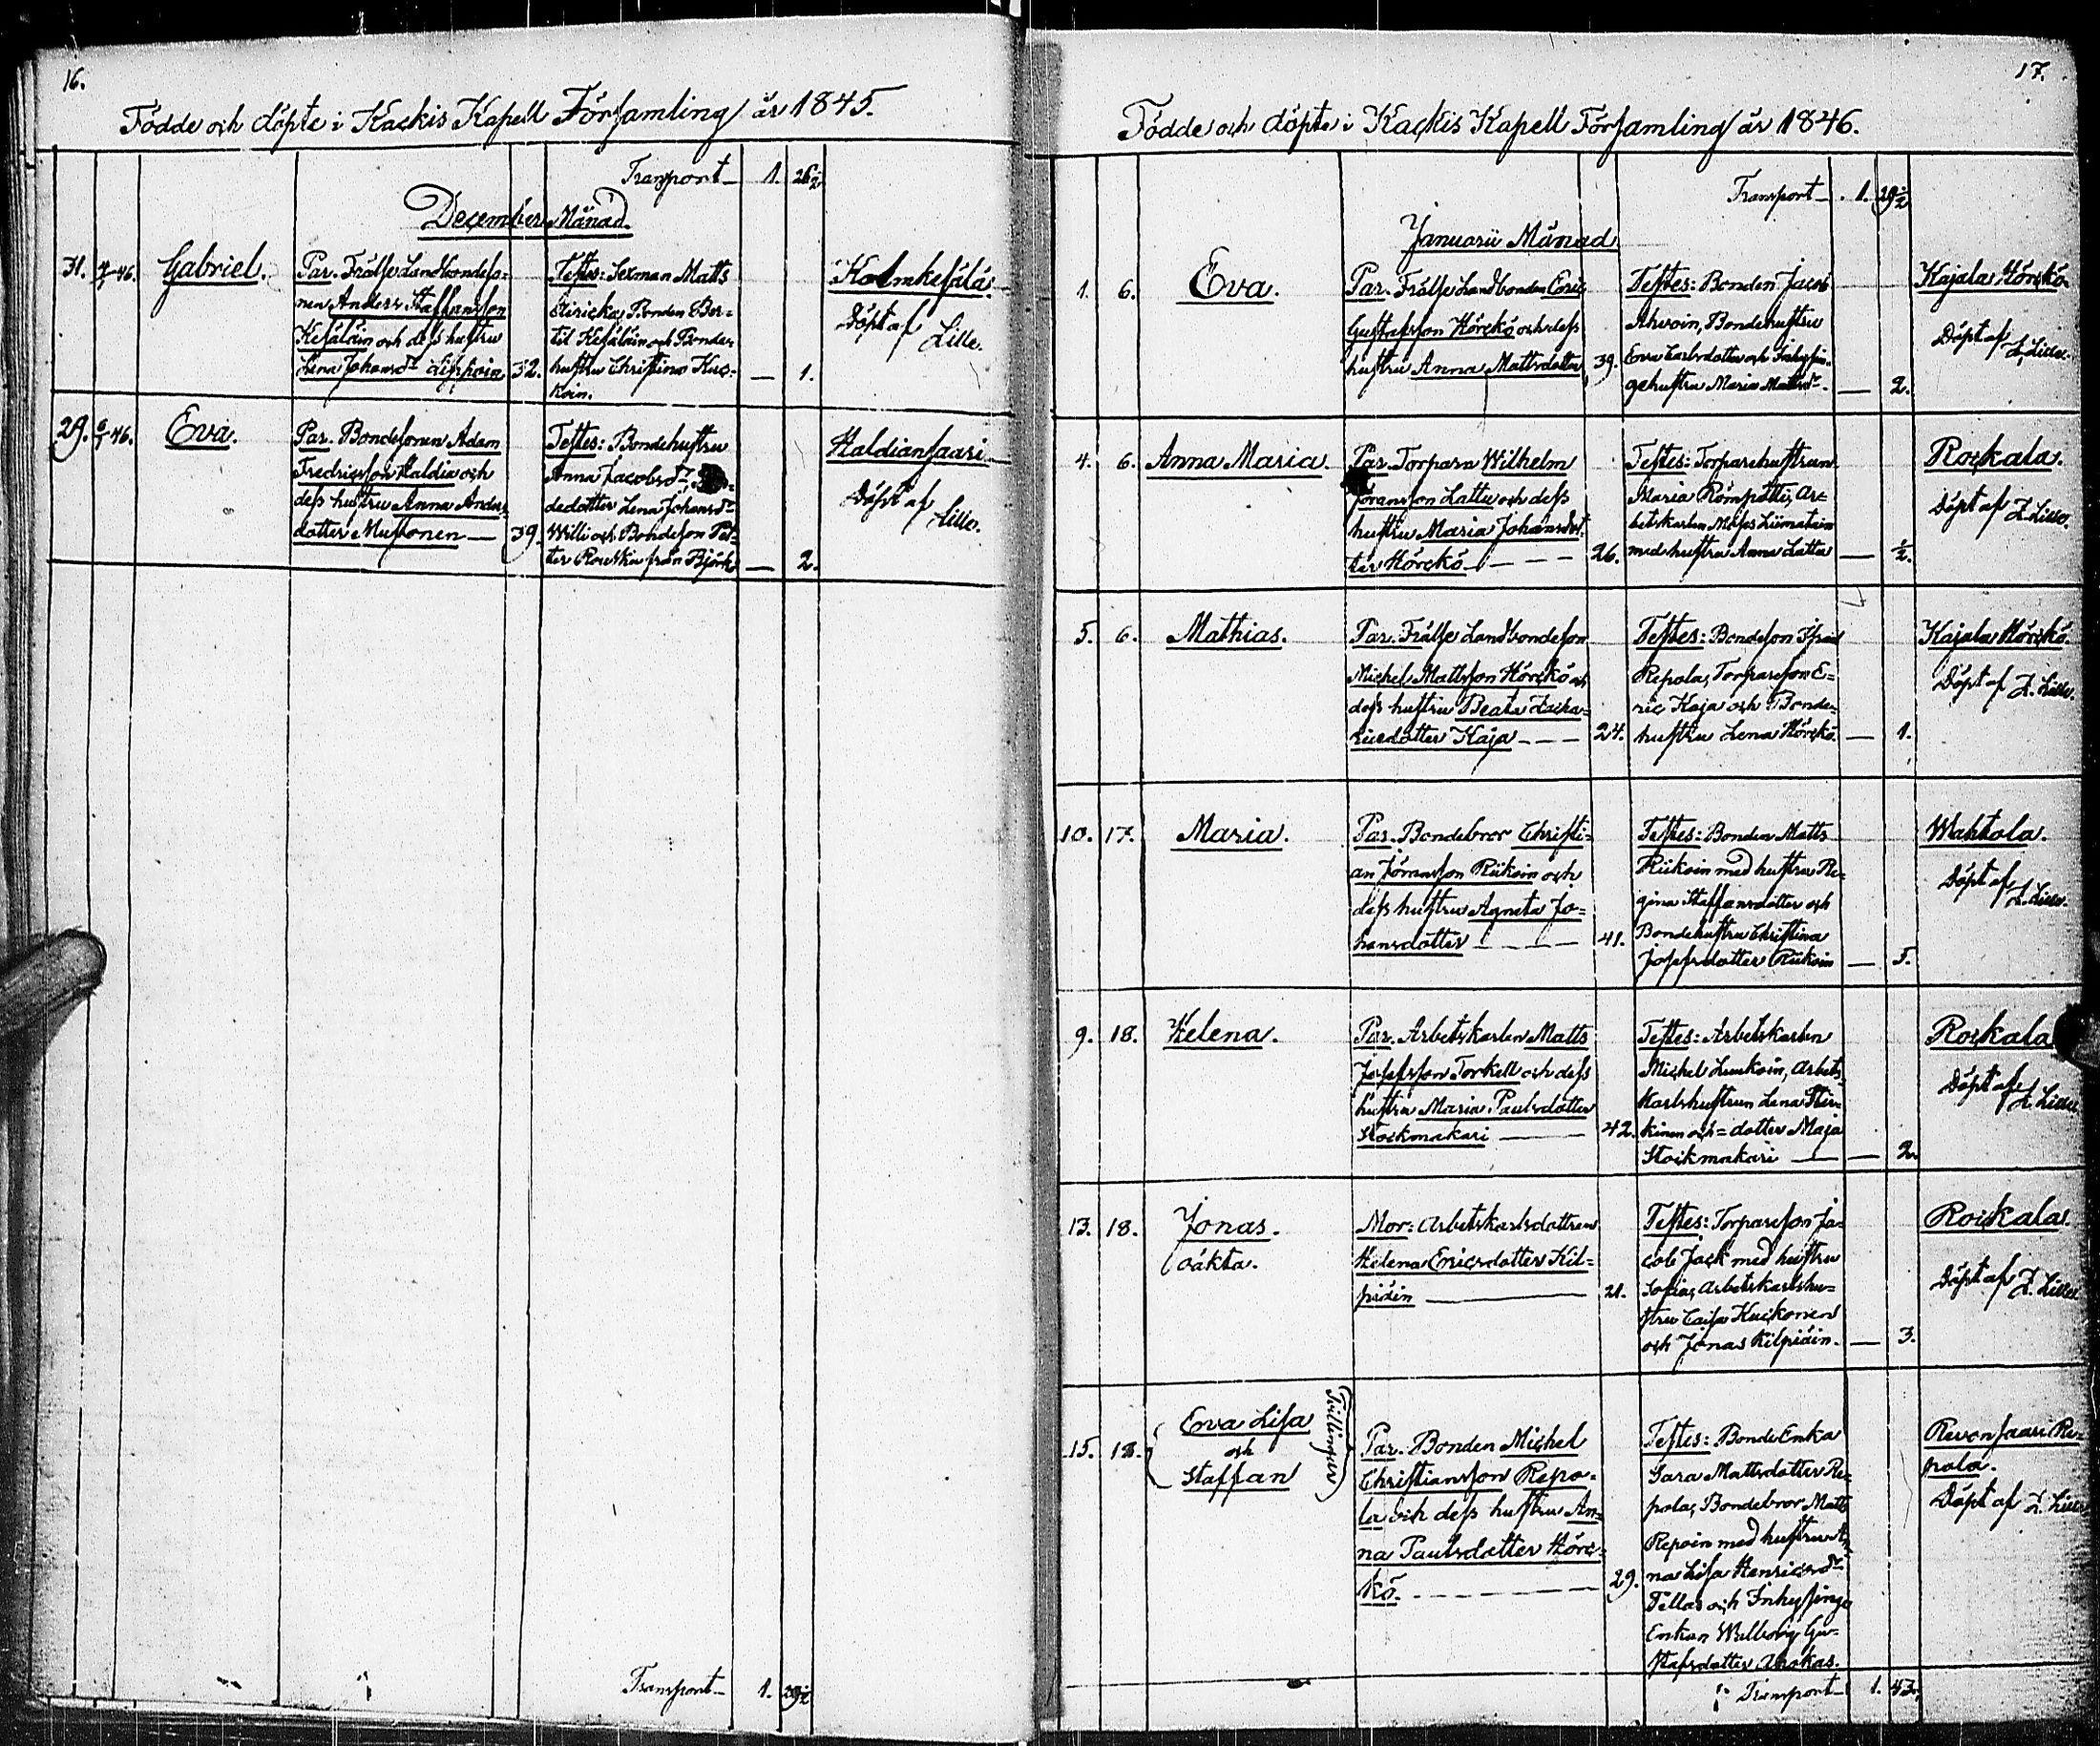 16.
Födde och döpte i Kackis Kapell Församling år 1845.
Transport 1. 26 1/2
December Månad.
31. 4/1 46. Gabriel.
Par. Frälse Landbondeso-
nen Anders Staffansson
Kesäläin och dess hustru
Lena Johansdr Lippoin 32.
Testes: Sexman Matts
Bonden Ber-
til Kesäläin och Bonde-
hustru Christina Kus-
koin. — 1.
Holmkesälä.
Döpt af
Lille.
29. 6/1 46. Eva.
Par. Bondesonen Adam
Fredricsson Haldia och
dess hustru Anna Anders-
dotter Mustonen — 39.
Testes: Bondehustru
Anna Jacobsdr,
dedotter Lena Johansdr
Willi och Bondeson Pet-
ter Rousku från Björk — 2.
Haldiansaari
Döpt af
Lille.
Transport 1. 29 1/2
17.
Födde och döpte i Kackis Kapell Församling år 1846.
Transport 1. 29 1/2
Januarii Månad
1. 6. Eva.
Par. Frälse Landbonden Eric
Gustafsson Hörckö och dess
hustru Anna Mattsdotter 39.
Testes: Bonden Jacob
Ahvoin, Bondehustru
Eva Carlsdotter och Inhysin-
gehustru Maria Mattsdr — 2.
Kajala Hörckö
Döpt af
Z. Lille.
4. 6. Anna Maria.
Par. Torparn Wilhelm
Göransson Lattu och dess
hustru Maria Johansdot-
ter Hörckö — 26.
Testes: Torparehustrun
Maria Römpötti, Ar-
betskarlen Moses Liimatain
med hustru Anna Lattu — 1/2.
Rockala.
Döpt af Z. Lille.
5. 6. Mathias.
Par. Frälse Landbondeson
Michel Mattsson Hörckö och
dess hustru Beata Zacha-
riaedotter Kaja — 24.
Testes: Bondeson
Repola, Torpareson E-
ric Kaja och Bonde-
hustru Lena Hörckö — 1.
Kajala Hörckö.
Döpt af Z. Lille.
10. 17. Maria.
Par. Bondebror Christi-
an Jöransson Riikoin och
dess hustru Agneta Jo-
hansdotter — 41.
Testes: Bonden Matts
Riikoin med hustru Re-
gina Staffansdotter och
Bondehustru Christina
Josefsdotter Riikoin — 5.
Wahtola.
Döpt af
Z. Lille.
9. 18. Helena.
Par. Arbetskarlen Matts
Josefsson Torkell och dess
hustru Maria Paulsdotter
Stockmakari — 42.
Testes: Arbetskarlen
Michel, Arbets-
karlshustrun Lena
kinen och = dotter Maja
Stockmakari — 2.
Rockala
Döpt af
Z. Lille
13. 18. Jonas.
oäkta.
Mor: Arbetskarlsdottren
Helena Ericsdotter Kil-
piäin — 21.
Testes: Torpareson Ja-
cob Jack med hustru
Sofia, Arbetskarlshu-
stru Caisa Kuckonen
och Jonas Kilpiäin. — 3.
Rockala.
Döpt af Z. Lille
15. 18. Eva Lisa
och
Staffan
Tvillingar
Par. Bonden Michel
Christiansson Repo-
la och dess hustru An-
na Paulsdotter Hörc-
kö. — 29.
Testes: BondeEnka
Sara Mattsdotter Re-
pola, Bondebror Matts
Repoin med hustru An-
na Lisa Henricsdr
Tellas och Inhysinge
Enkan Walborg Gu-
stafsdotter Ahokas.
Revonsaari Re-
pola.
Döpt af Z. Lille
Transport 1. 43.